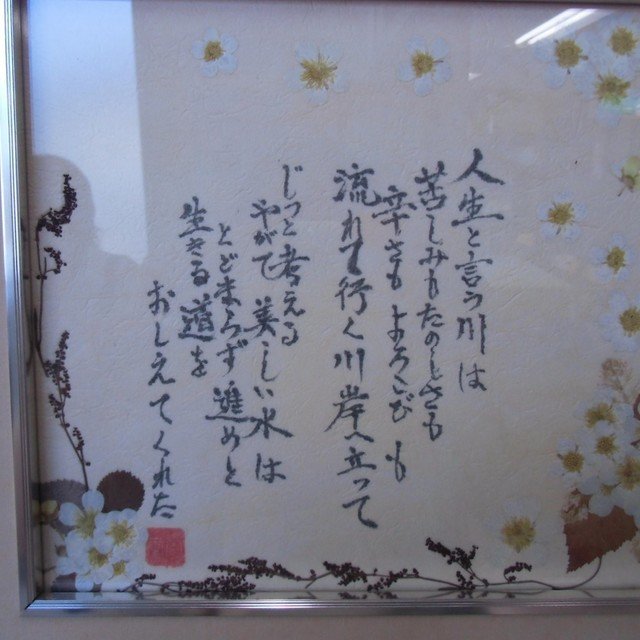 人生と言う川は
苦しみもたのしさも
辛さも よろこび も
流れて行く川岸へ立って
じっと考える
やがて 美しい水は
とどまらず進めと
生きる道を
おしえてくれた